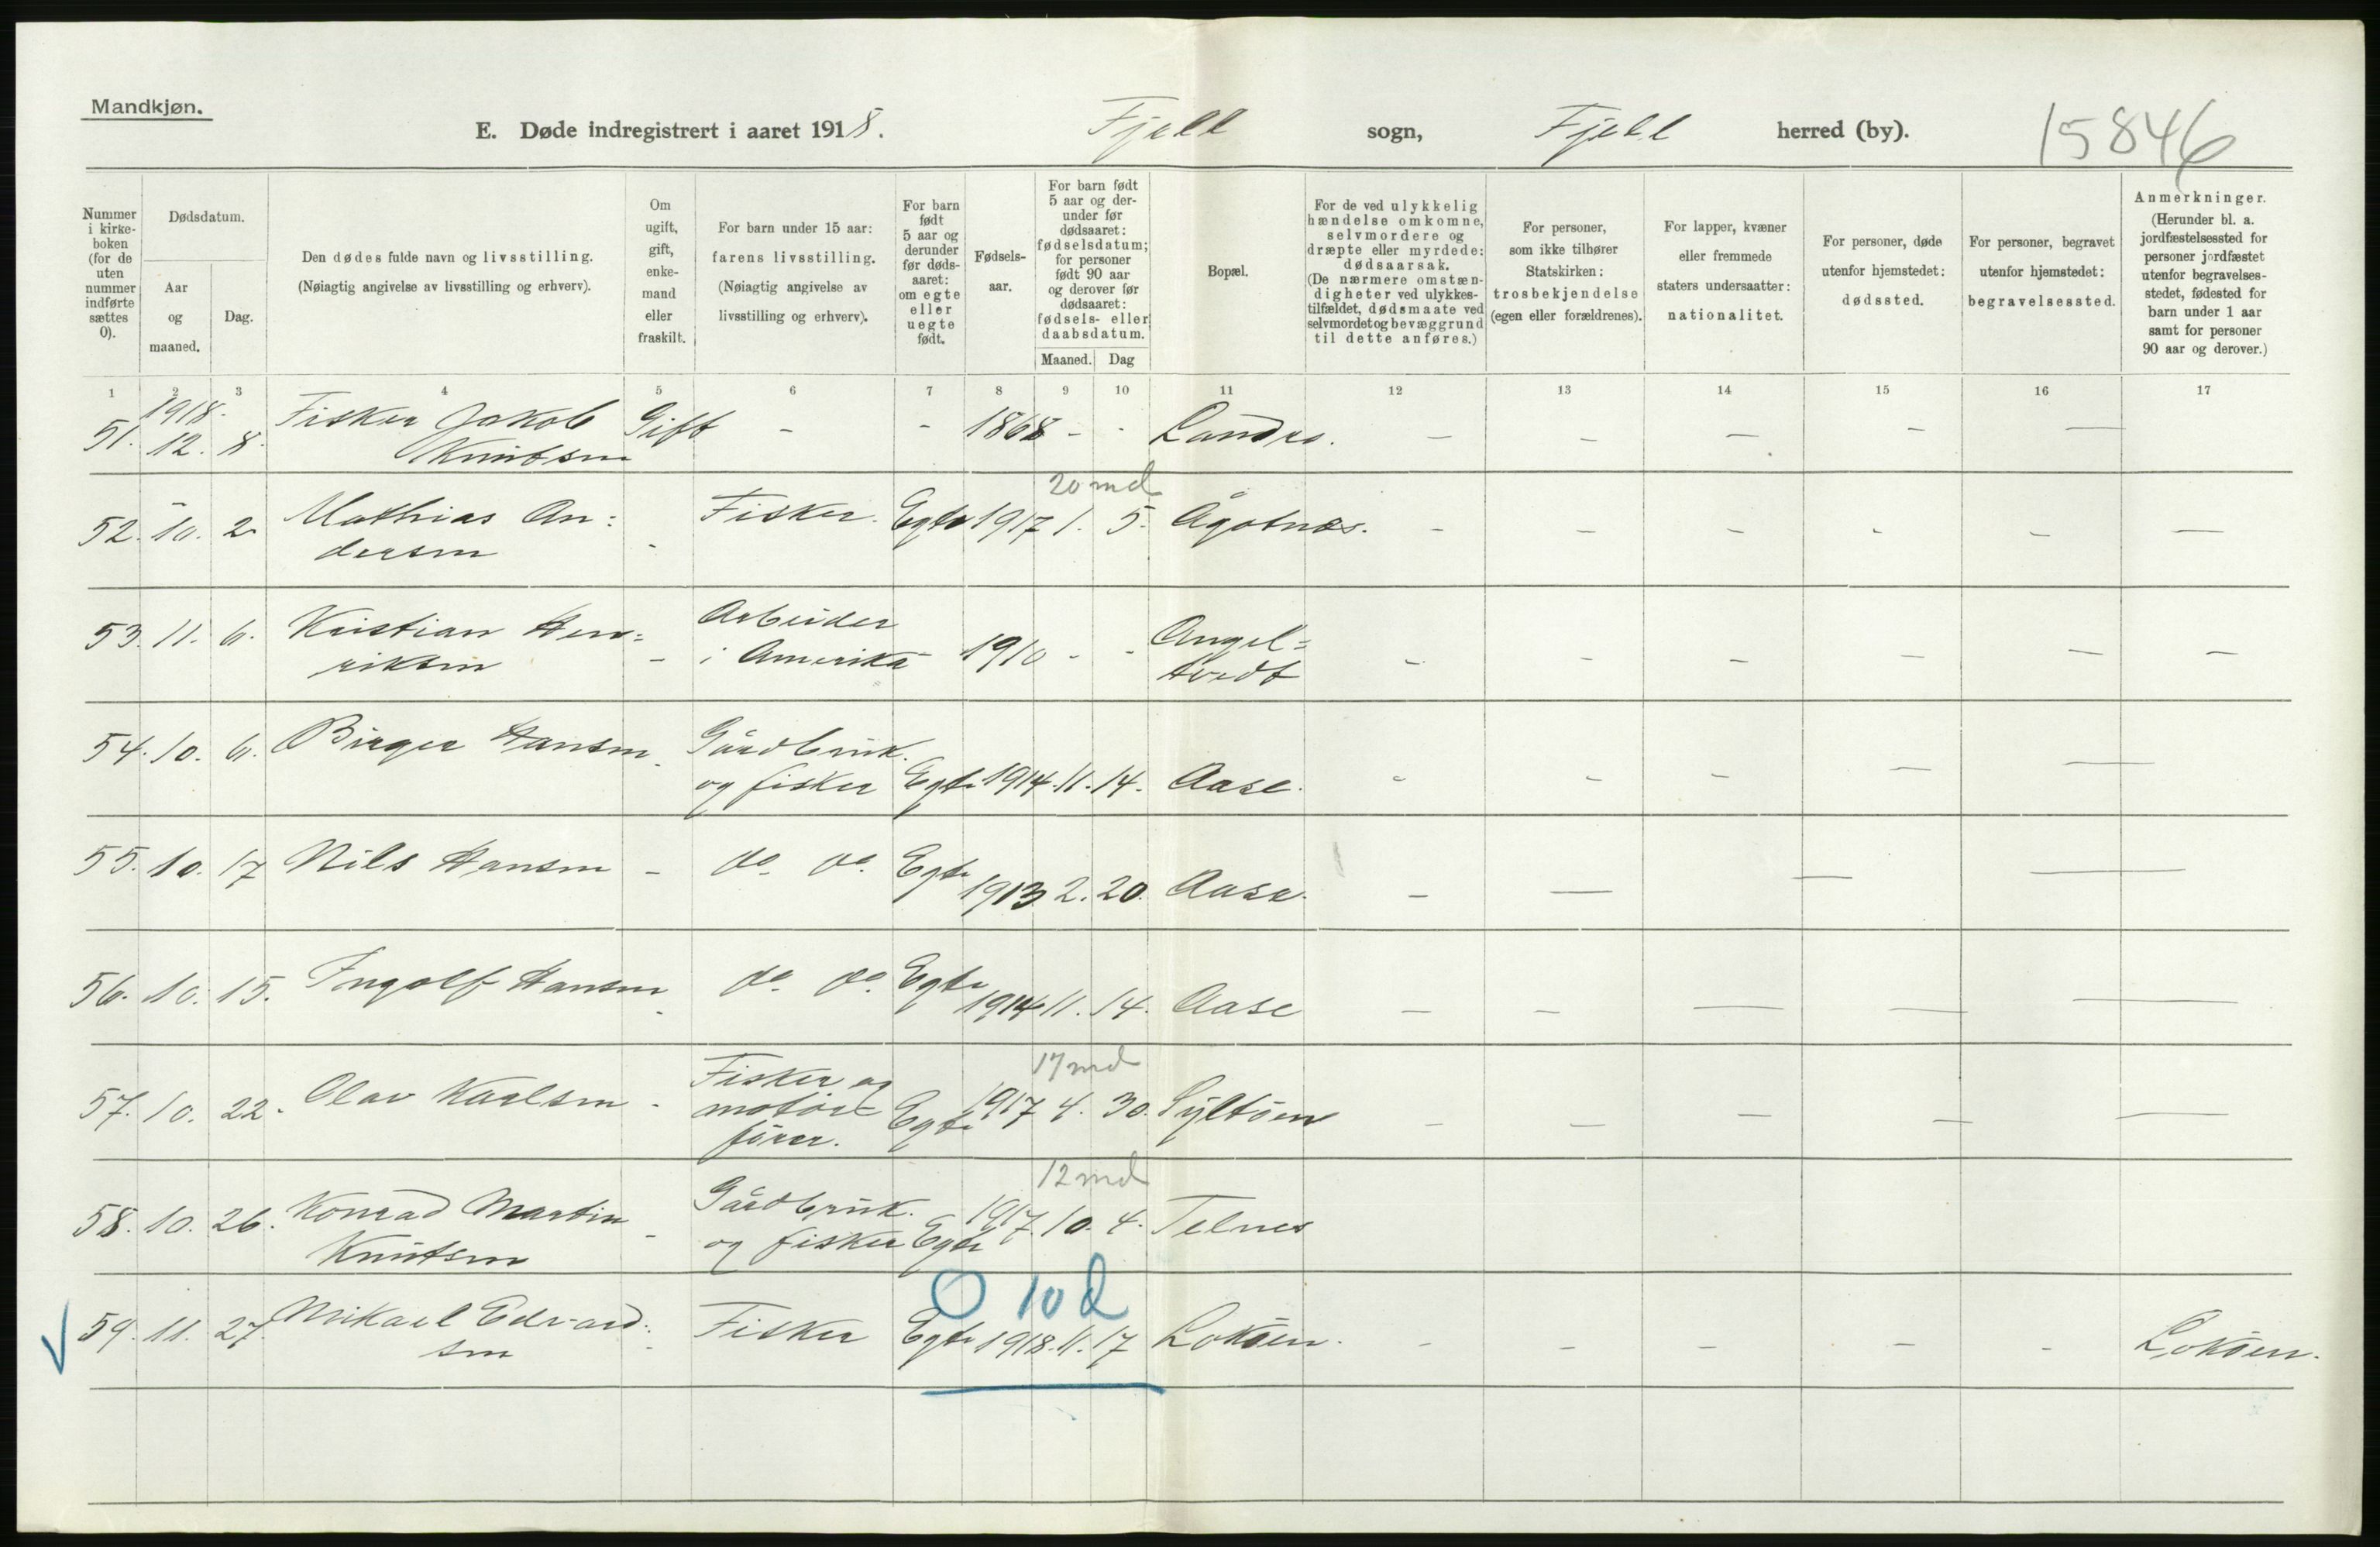 Mandkjøn.
E. Døde indregistrert i aaret 1918. Fjell sogn, Fjell herred (by). 15846
Nummer i kirkeboken (for de uten nummer indførte sættes 0).
Dødsdatum.
Aar og maaned.
Dag.
Den dødes fulde navn og livsstilling.
(Nøiagtig angivelse av livsstilling og erhverv).
Om ugift, gift, enkemand eller fraskilt.
For barn under 15 aar: farens livsstilling.
(Nøiagtig angivelse av livsstilling og erhverv).
For barn født 5 aar og derunder før dødsaaret: om egte eller uegte født.
Fødselsaar.
For barn født 5 aar og derunder før dødsaaret: fødselsdatum; for personer født 90 aar og derover før dødsaaret: fødsels- eller daabsdatum.
Maaned. Dag
Bopæl.
For de ved ulykkelig hændelse omkomne, selvmordere og dræpte eller myrdede: dødsaarsak.
(De nærmere omstændigheter ved ulykkestilfældet, dødsmaate ved selvmordet og bevæggrund til dette anføres.)
For personer, som ikke tilhører Statskirken: trosbekjendelse (egen eller forældrenes).
For lapper, kvæner eller fremmede staters undersaatter: nationalitet.
For personer, døde utenfor hjemstedet: dødssted.
For personer, begravet utenfor hjemstedet: begravelsessted.
Anmerkninger.
(Herunder bl. a. jordfæstelsessted for personer jordfæstet utenfor begravelsesstedet, fødested for barn under 1 aar samt for personer 90 aar og derover.)
1 2 3 4 5 6 7 8 9 10 11 12 13 14 15 16 17
1918.
51. 12. 8. Fisker Jakob Gift - - 1868 - - Landro. - - - - -
Knutsen
20 md
52. 10. 2 Mathias An: - Fisker. Egte 1917 1. 5. Ågotnæs. - - - - - -
dersen
53. 11. 6. Kristian Hen= - Arbeider 1910 - - Angel= - - - - - -
riksen i Amerika tvedt
54. 10. 6. Birger Hansen - Gårdbruk.
og fisker Egte 1914. 11. 14. Aase. - - - - -
55. 10. 17 Nils Hansen - do. do. Egte 1913. 2. 20. Aase. - - - -
56. 10. 15. Ingolf Hansen - do. do. Egte 1914 11. 14. Aase - - - - -
17 md
57. 10. 22. Olav Karlsen - Fisker og
motor- Egte 1917 4. 30. Syltøen - - - - -
fører.
12 md
58. 10. 26. Konrad Martin - Gårdbruk. 1917. 10. 4. Telnes
Knutsen og fisker Egte
O 10 d
59. 11. 27. Mikael Edvard: - Fisker Egte 1918. 11. 17 Lokøen. - - - - - Lokøen.
sen